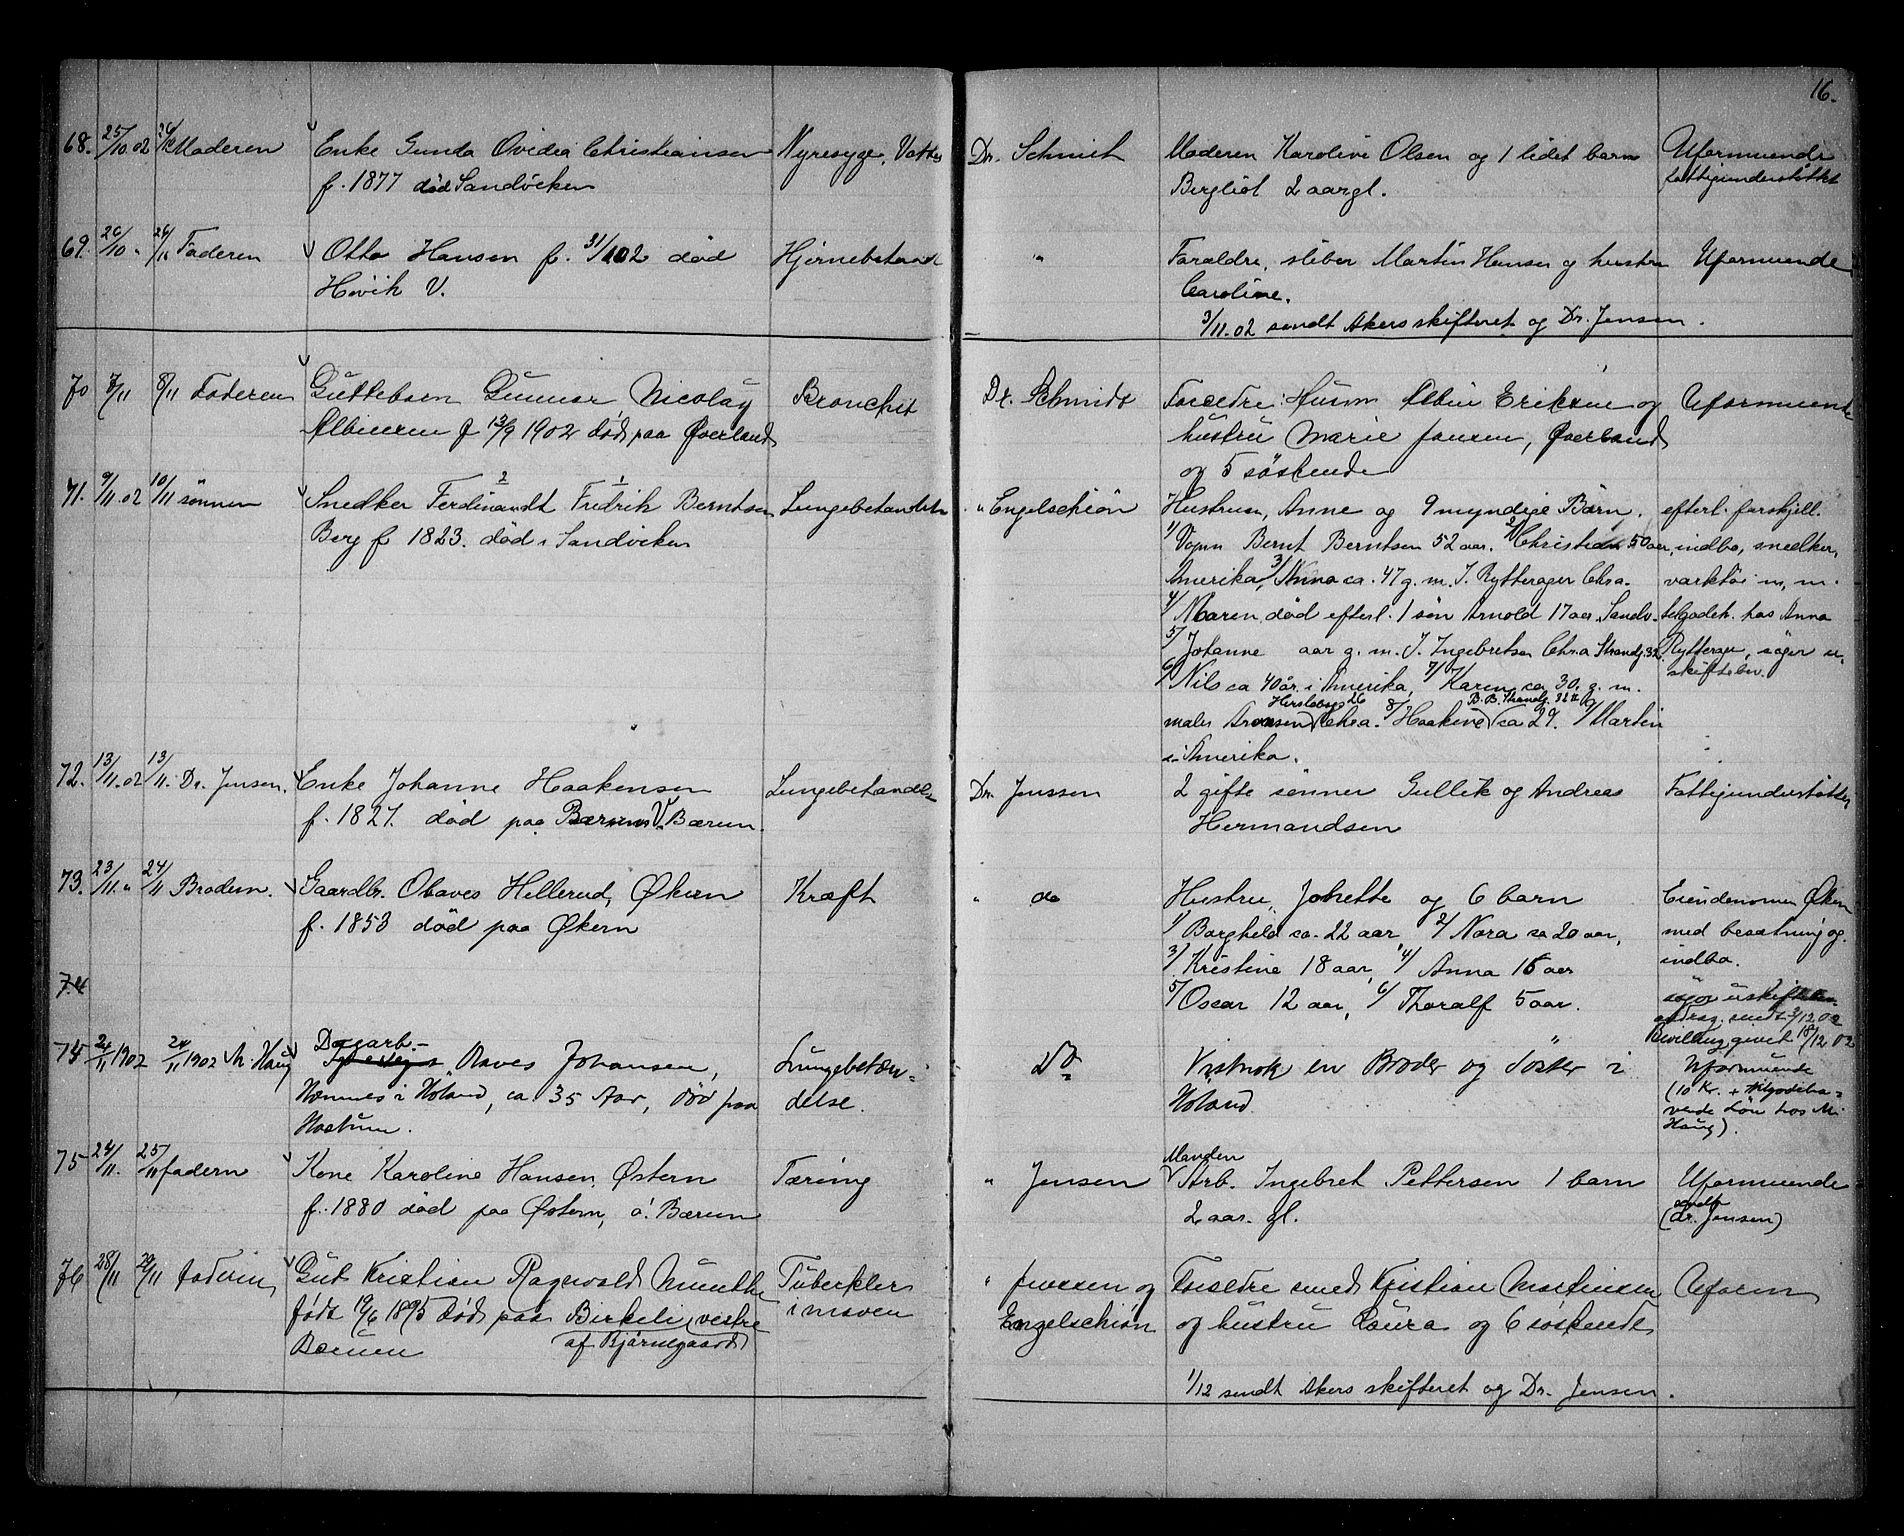 16.
68. 25/10.02 26/10 Moderen Enke Gunda Ovidia Christiansen Nyresyge, Dr. Schmidt Moderen Karoline Olsen og 1 lidet barn Uformuende
f. 1877 død Sandviken Bergliot 2 aargl. fattigunderstøttet
69. 26/10 " Faderen Otto Hansen f. død Hjernebetænd " Forældre, sliber Martin Hansen og hustru Uformuende
Høvik V. Caroline.
3/11.02 sendt Akers skifteret og Dr. Jensen.
70 7/11 8/11 Faderen Guttebarn Gunnar Nicolay Bronchit Dr. Schmidt Forældre: Husm Albin Eriksen og Uformuende
Albinsen f 13/9 1902 død paa Øverland hustru Marie Jansen, Øverland
og 5 søskende
71. 9/11.02 10/11 sønnen Snedker Ferdinandt Fredrik Berntsen Lungebetændelse " Engelschiøn Hustruen, Anne og 9 myndige Børn. efterl. forskjell.
Berg f 1823. død i Sandviken 1/ Vogn Bernt Berntsen 52 aar. 2/ Christian 50 aar, indbo, snedker,
Amerika, 3/ Anna ca. 47 g. m. J. Rytterager Chra. værktøi m, m.
4/ Maren død efterl. 1 søn Arnold 17 aar, Sandv. tilgodeh. hos Anna
5/ Johanne aar g. m. J. Ingebretsen Chr.a Strandg. 32. Rytterager, søger u.
6/ Nils ca 40 år i Amerika, 7/ Karen ca 30. g. m. skiftebev.
maler Aronsen Chra. 8/ Haakine ca 29. 9/ Martin
i Amerika.
72. 13/11.02 13/11. Dr. Jensen. Enke Johanne Haakensen Lungebetændelse Dr. Jenssen 2 gifte sønner Gullik og Andreas Fattigunderstøttet
f. 1827. død paa Bærums V. Bærum. Hermandsen
73. 23/11. " 24/11 Brodern. Gaardbr. Olaves Hellerud, Økern Kræft " do Hustru, Johette og 6 barn Eiendommen Økern
f. 1853 død paa Økern 1/ Borghild ca. 22 aar, 2/ Nora ca 20 aar, med besætning og
3/ Kristine 18 aar, 4/ Anna 15 aar indbo.
74 5/ Oscar 12 aar, 6/ Thoralf 5 aar. søger uskiftebev.
andrag. sendt 3/12 02
Bevilling givet 18/12 02
75 24/11 1902 24/11 1902 M. Haug Dagarb. Olaves Johansen, Lungebetæn- Do Vistnok en Broder og Søster i Uformuende
Hemnes i Høland, ca 35 Aar, død paa delse. Høland. (10 Kr. + tilgodeha-
Hostrum. vende Løn hos M.
Haug).
75 24/11. 25/11 fadern Kone Karoline Hansen, Østern Tæring " Jensen Manden Arb. Ingebret Pettersen 1 barn Uformuende
f. 1880 død paa Østern, ø. Bærum 2 aar. gl. (dr. Jensen)
76 28/11 29/11 faderen Gut Kristian Ragnvald Munthe Tuberkler " Jenssen og Forældre smed Kristian Martinsen Uform
født 19/6 1895 død paa Birkeli, vestre i maven Engelschiøn og hustru Laura og 6 søskende
Bærum af Bjørnegaard
1/12 sendt Akers skifteret og Dr. Jensen.